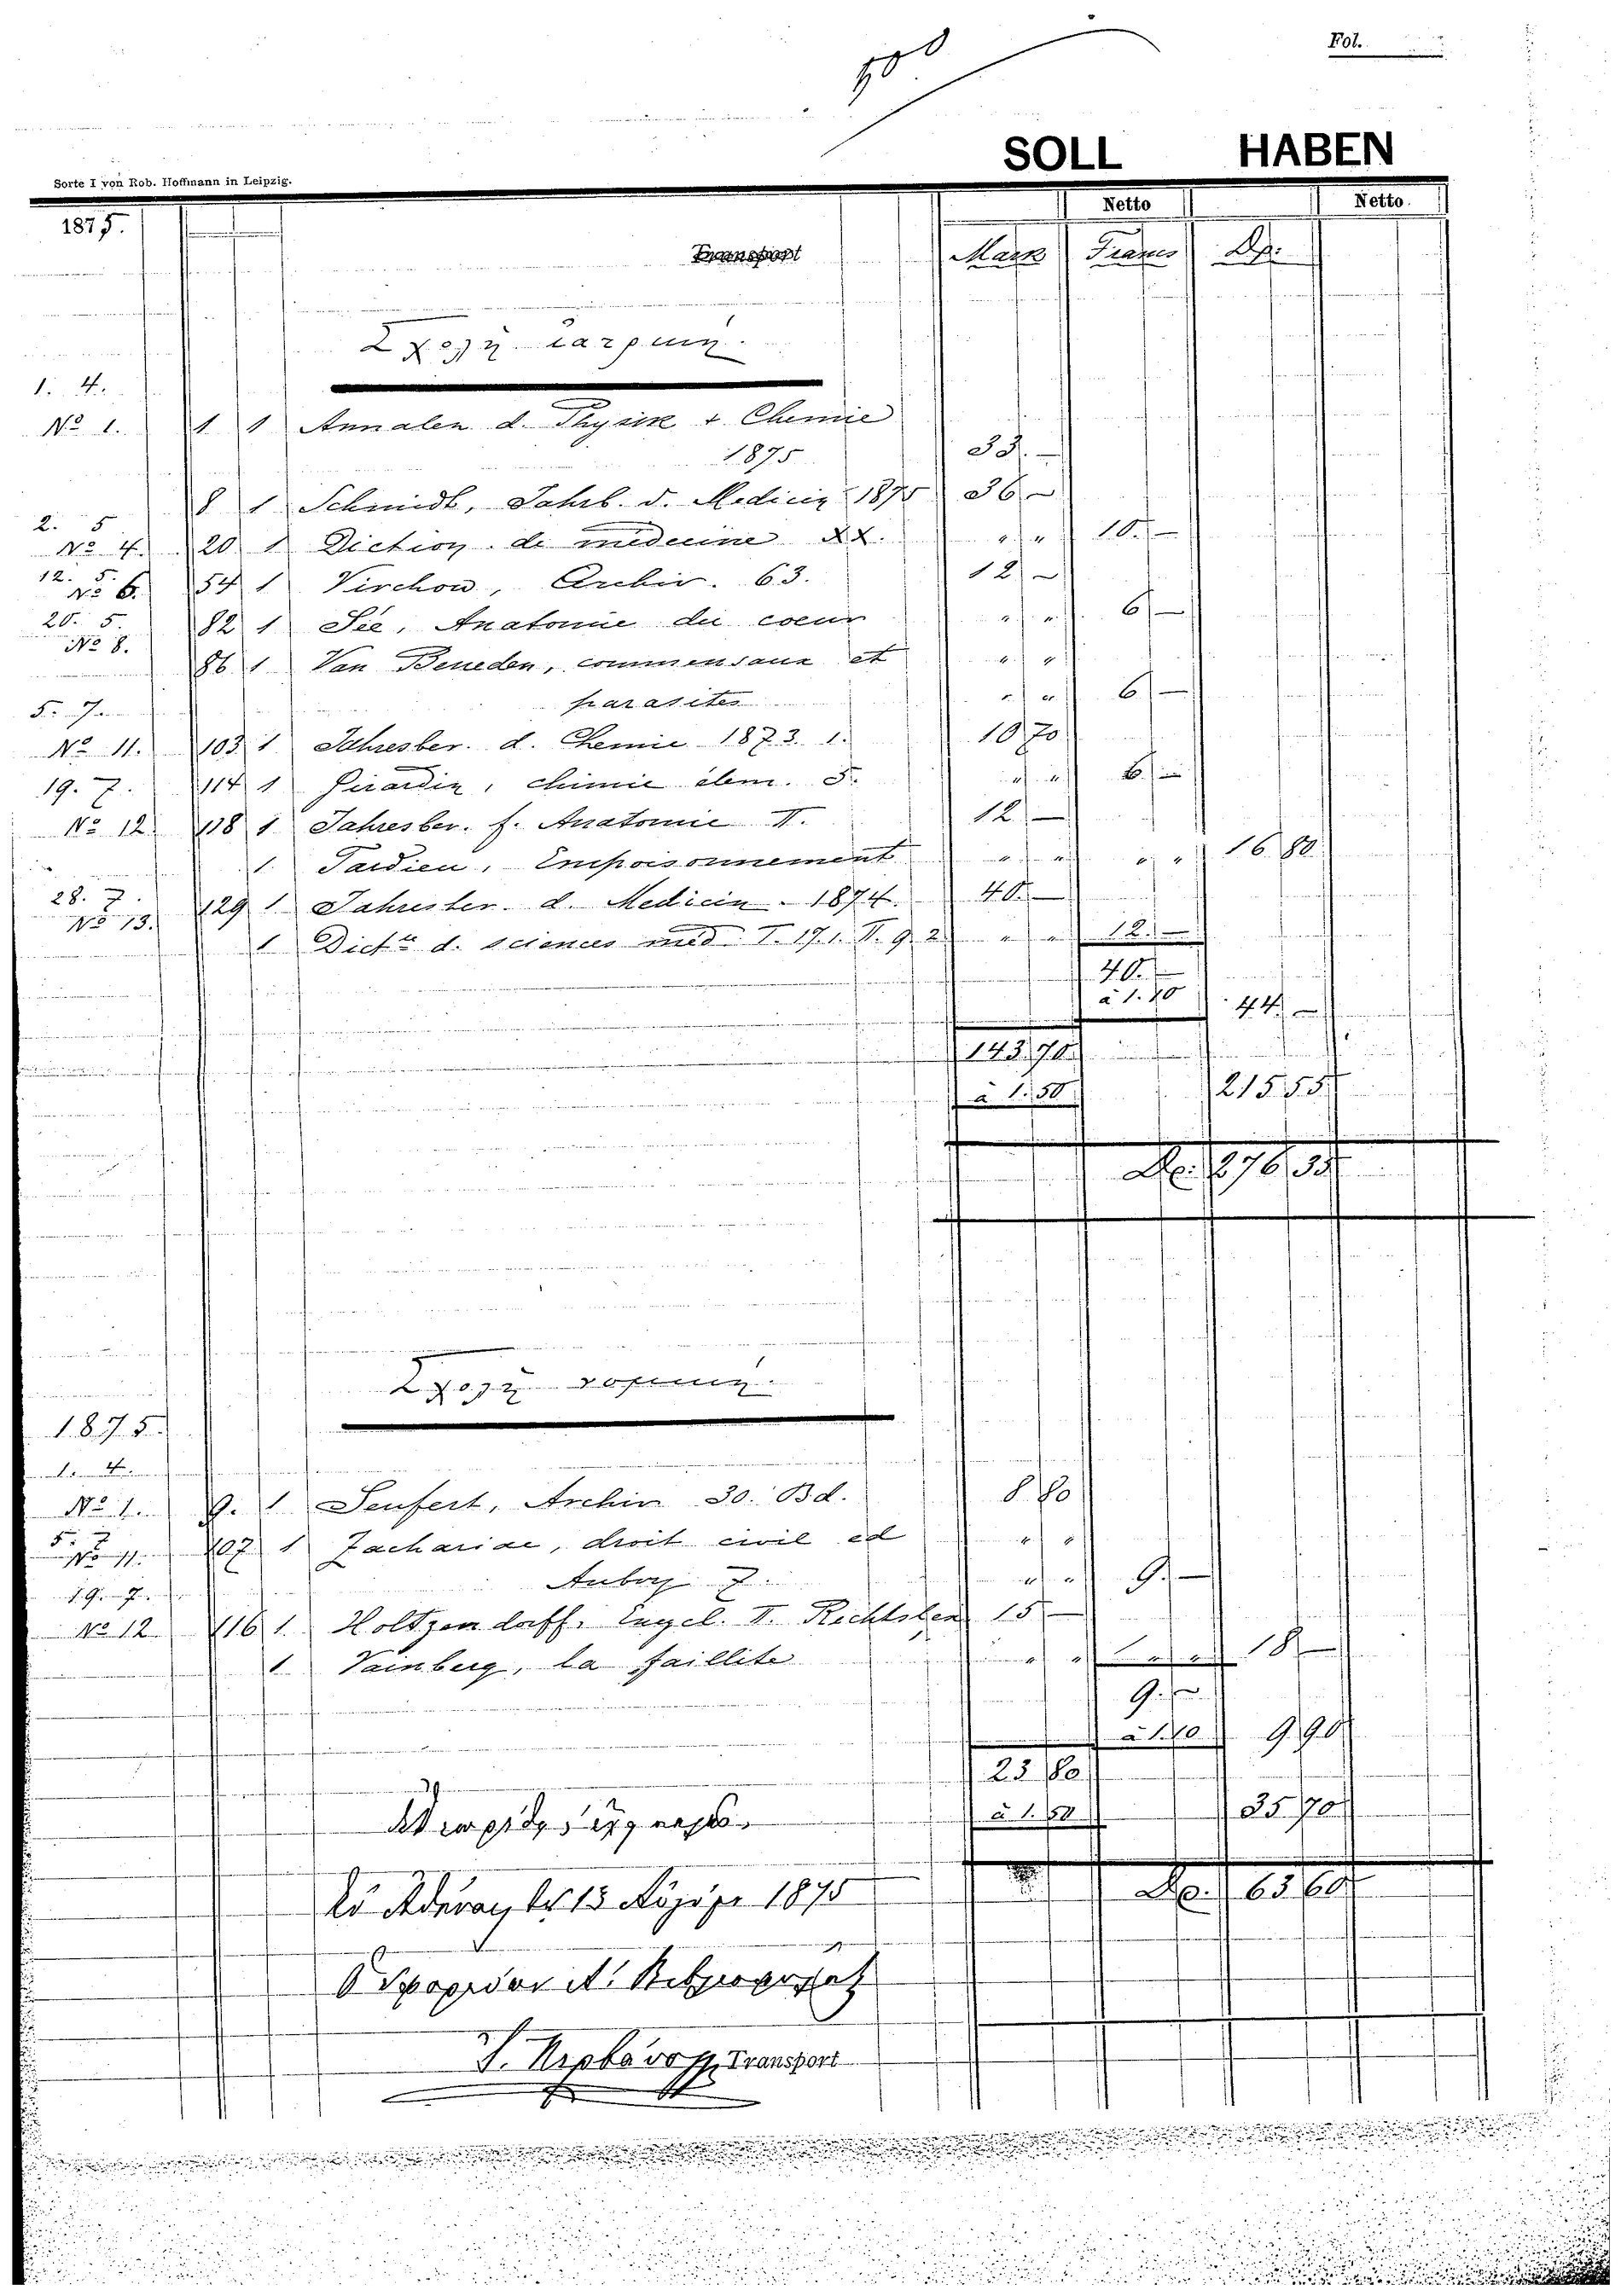 Fol.
SOLL HABEN
Sorte I von Rob. Hoffmann in Leipzig.
Netto Netto
1875.
Transport Mark Francs Δρ.
Σχολὴ ἰατρική.
1. 4.
No 1. 1 1 Annalen d. Physik + Chemie
1875 33.—
8 1 Schmidt, Jahrb. d. Medicin 1875 36 —
2. 5
No 4. 20 1 Diction. de médecine XX. " " 10.—
12. 5.
No 6. 54 1 Virchow, Archiv. 63. 12 —
20. 5.
No 8. 82 1 Sée, Anatomie du coeur " " 6 —
86 1 Van Beneden, commensaux et " "
parasites " " 6 —
5. 7.
No 11. 103 1 Jahresber. d. Chemie 1873. 1. 10 70
19. 7. 114 1 Girardin, chimie élem. 5. " " 6 —
No 12 118 1 Jahresber. f. Anatomie II. 12 —
1 Tardieu, Empoisonnement " " " " 16 80
28. 7.
No 13. 129 1 Jahresber. d. Medicin. 1874. 40.—
1 Dictre d. sciences méd. I. 17.1. II. 9. 2 " " 12.—
40.—
à 1.10 44 —
143 70
à 1.50 215 55
Δρ. 276 35
Σχολὴ νομική.
1875
1. 4.
No 1. 9. 1 Seufert, Archiv 30. Bd. 8 80
5. 7
No 11. 107 1 Zachariae, droit civil ed " "
Aubry 7. " " 9.—
19. 7.
No 12 116 1. Holtzendorff. Encycl. II. Rechtslex 15 —
1. Vainberg, la faillite " " " " 18 —
9.—
à 1.10 9 90
23 80
à 1.50 35 70
Δρ. 63 60
1875
Transport